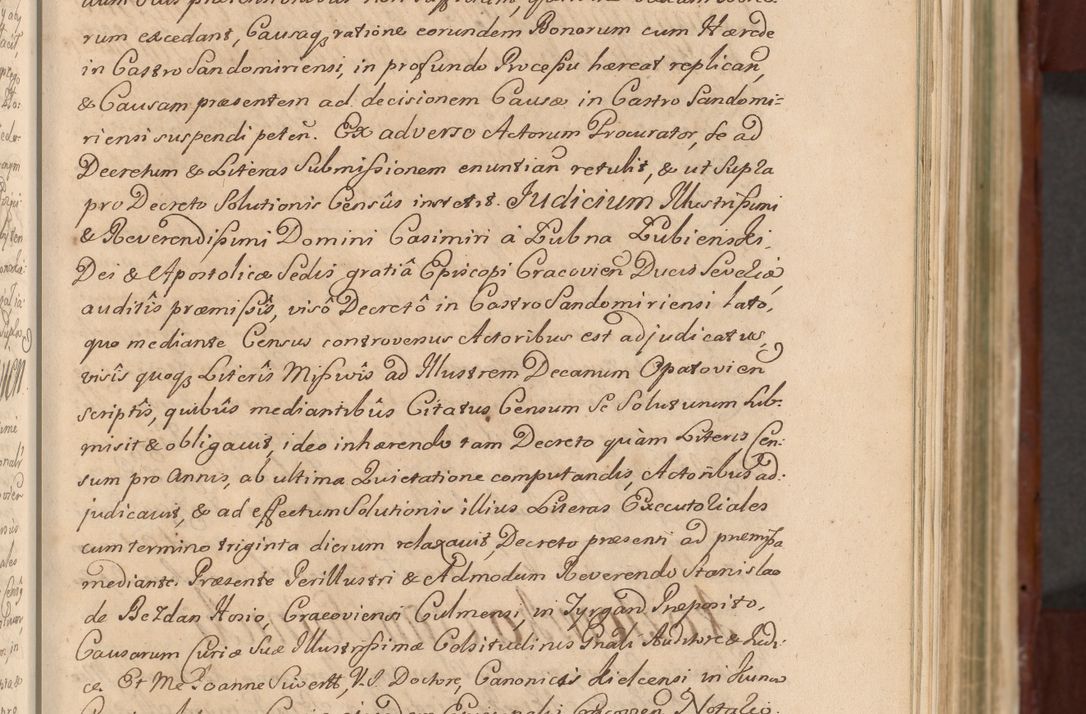 rum excedant, Causaq; ratione eorundem Bonorum cum Hærede
in Castro Sandomiriensi, in profundo Processu hæreat replican,
& Causam præsentem ad decisionem Causæ in Castro Sandomi=
riensi suspendi peteñ. Ex adverso Actorum Procurator, se ad
Decretum & Literas Submissionem enuntiañ retulit, & ut supra
pro Decreto Solutionis Censûs institit. Judicium Illustrissimi
& Reverendissimi Domini Casimiri à Łubna Łubienski,
Dei & Apostolicæ Sedis gratiâ Episcopi Cracovieñ Ducis Severiæ
auditîs præmissîs, visô Decretô in Castro Sandomiriensi lato,
quo mediante Census controversus Actoribus est adjudicatus,
visîs quoq; Literîs Missivîs ad Illustrem Decanum Opatovieñ
scriptîs, quibûs mediantibûs Citatus Censum se soluturum sub-
misit & obligavit, ideo inhærendo tam Decreto quàm Literis Cen:
sum pro Annis, ab ultima Quietatione computandis, Actoribus ad:
judicavit, & ad effectum Solutionis illius Literas Executoriales
cum termino triginta dierum relaxavit, Decreto præsenti ad præmissa
mediante. Præsente Perillustri & Admodum Reverendo Stanislao
de Bezdan Hosio, Cracoviensi Culmensi, in Præposito,
Causarum Curiæ Suæ Illustrissimæ Celsitudinis Gñali Auditore & Judi:
ce. Et Me Joanne Siwertt, V.J. Doctore, Canonico in